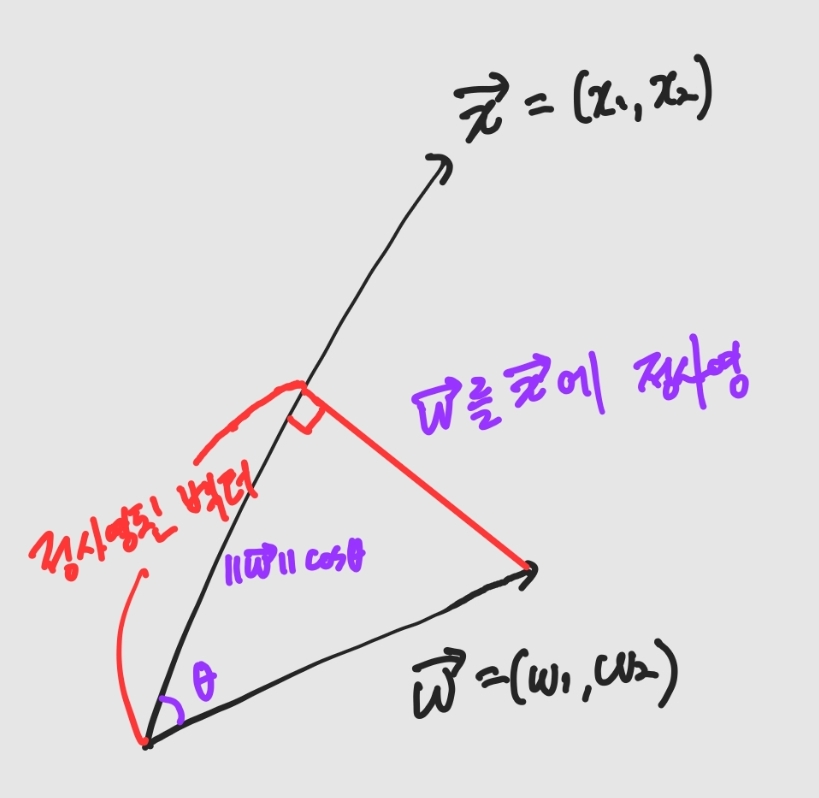 x⃗ = (x₁, x₂)
w⃗를 x⃗에 정사영
정사영된 벡터
||w⃗|| cosθ
θ
w⃗ = (w₁, w₂)